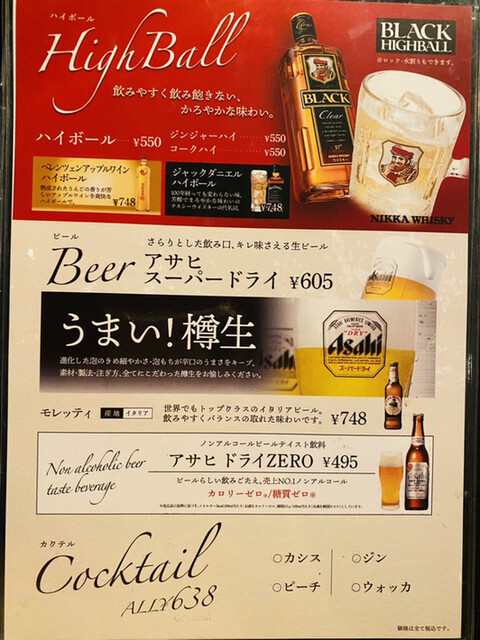 ハイボール
HighBall
BLACK
HIGHBALL
※ロック・水割りもできます。
飲みやすく飲み飽きない、
かろやかな味わい。
BLACK
Clear
ハイボール ¥550
ジンジャーハイ ¥550
コークハイ ¥550
ベレンツェンアップルワイン
ハイボール
熟成されたりんごの香りが芳
しいアップルワインを爽快な
ハイボールで。
¥748
ジャックダニエル
ハイボール
100年経っても変わらない味。
芳醇でまろやかな味わいの
テネシーウイスキーの代名詞。
¥748
NIKKA WHISKY
ビール
Beer
さらりとした飲み口、キレ味さえる生ビール
アサヒ
スーパードライ ¥605
うまい!樽生
進化した泡のきめ細やかさ・泡もちが辛口のうまさをキープ。
素材・製法・注ぎ方、全てにこだわった樽生をお愉しみください。
ASAHI BREWERIES LIMITED
"DRY"
Asahi
スーパードライ
モレッティ
産地 イタリア
世界でもトップクラスのイタリアビール。
飲みやすくバランスの取れた味わいです。
¥748
Non alcoholic beer
taste beverage
ノンアルコールビールテイスト飲料
アサヒ ドライZERO ¥495
ビールらしい飲みごたえ。売上NO.1ノンアルコール
カロリーゼロ※/糖質ゼロ※
カクテル
Cocktail
ALL¥638
○カシス
○ジン
○ピーチ
○ウォッカ
価格は全て税込です。